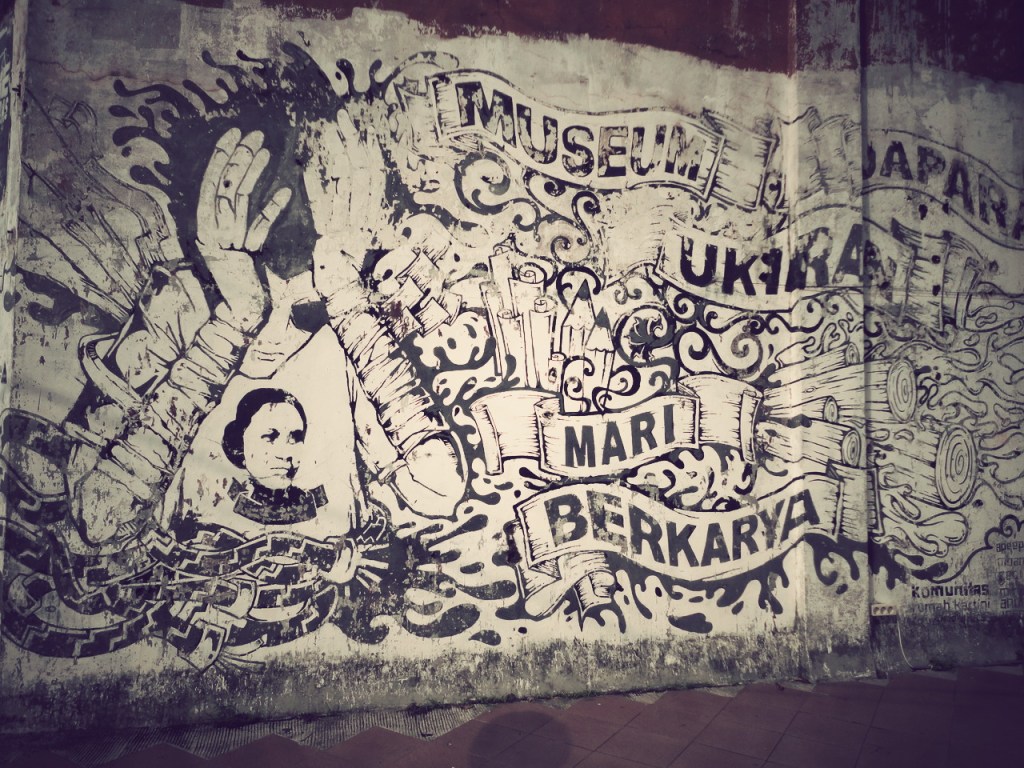 MUSEUM
UKIRAN
JAPARA
MARI
BERKARYA
komunitas
rumah kartini